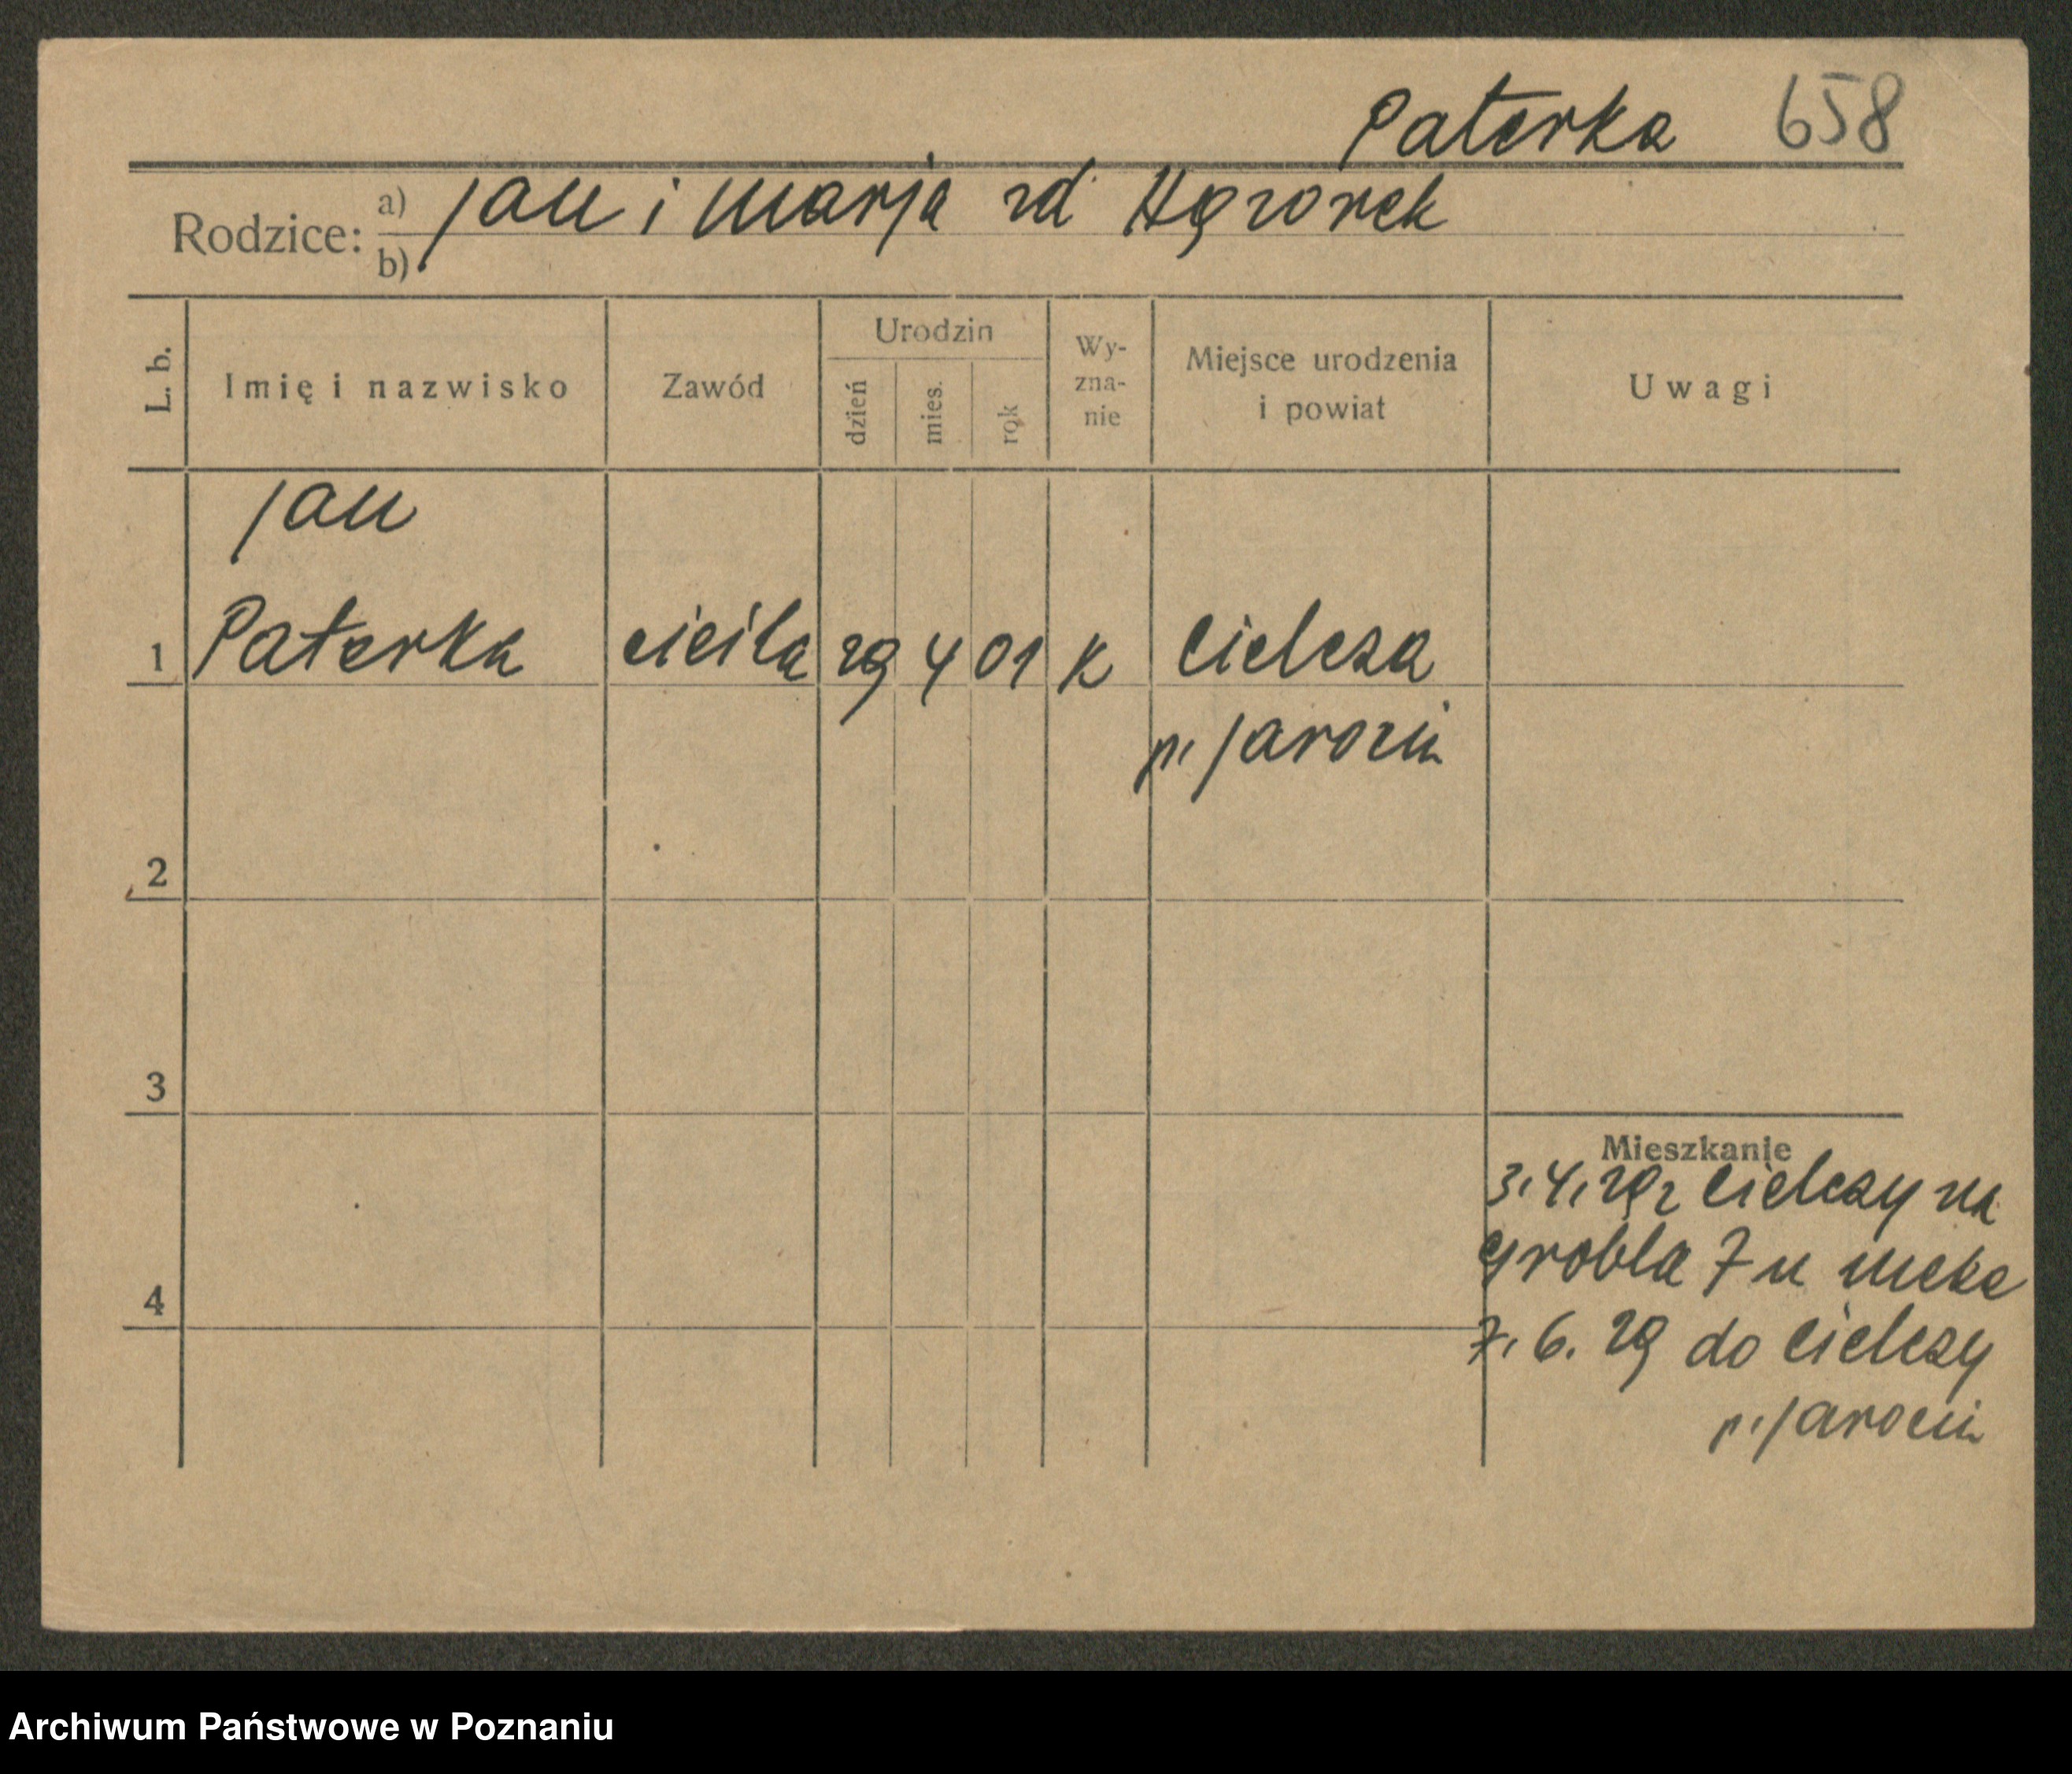 Paterka 658
Rodzice: a) Jan i Marja zd.
b)
L. b. Imię i nazwisko Zawód Urodzin dzień mies. rok Wy-zna-nie Miejsce urodzenia i powiat Uwagi
Jan
1 Paterka cieśla 29 4 01 K Cielcza
p. Jarocin
2
3
Mieszkanie
3.4.29 z Cielczy na
4 Grobla 7 u
7.6.29 do Cielczy
p. Jarocin
Archiwum Państwowe w Poznaniu